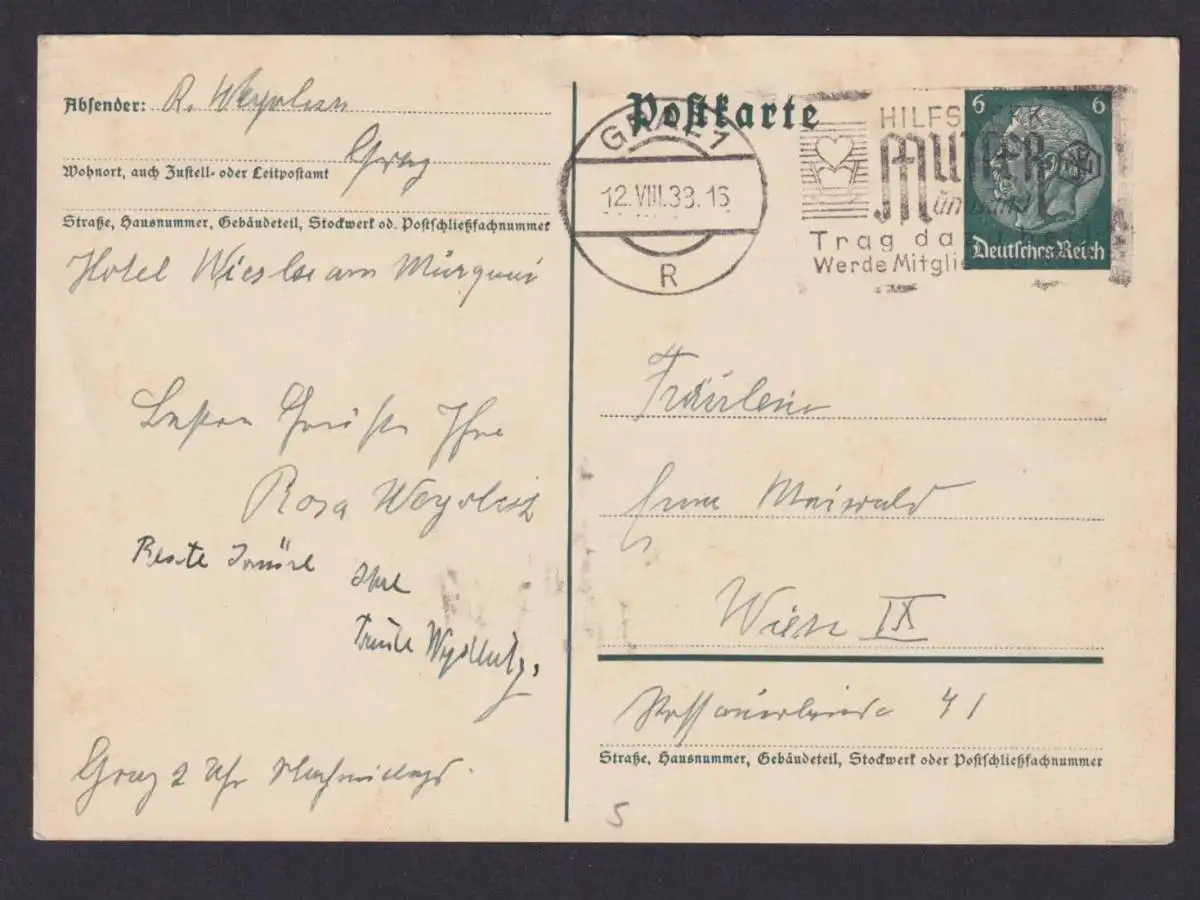 Absender: R.
Graz
Wohnort, auch Zustell- oder Leitpostamt
Straße, Hausnummer, Gebäudeteil, Stockwerk od. Postschließfachnummer
Hotel Wiesler am Murquai
Besten Grüße Ihre
Rosa
Beste Ihre
Graz 2 Uhr Nachmittags.
Postkarte
GRAZ 1
12.VIII.38.16
R
HILFSWERK
MUTTER UND
und Kind
Trag da
Werde Mitglie
6 6
Deutsches Reich
Fräulein
Erna Maiwald
Wien IX
41
Straße, Hausnummer, Gebäudeteil, Stockwerk oder Postschließfachnummer
5